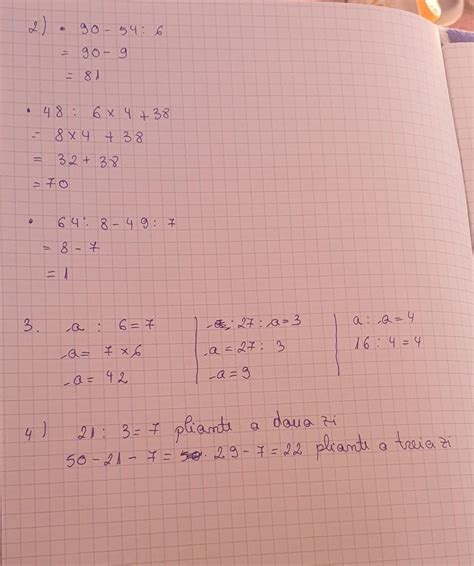 2) • 90 - 54 : 6
= 90 - 9
= 81
• 48 : 6 x 4 + 38
= 8 x 4 + 38
= 32 + 38
= 70
• 64 : 8 - 49 : 7
= 8 - 7
= 1
3. a : 6 = 7
a = 7 x 6
a = 42
27 : a = 3
a = 27 : 3
a = 9
a : a = 4
16 : 4 = 4
4) 21 : 3 = 7 pliante a doua zi
50 - 21 - 7 = 29 - 7 = 22 pliante a treia zi